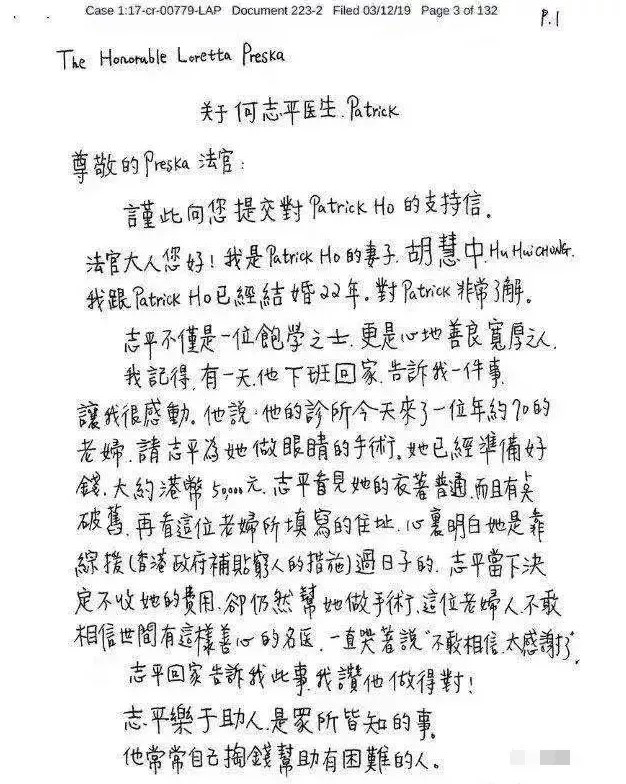 Case 1:17-cr-00779-LAP Document 223-2 Filed 03/12/19 Page 3 of 132
P.1
The Honorable Loretta Preska
关于何志平医生.Patrick
尊敬的Preska 法官:
謹此向您提交對Patrick Ho 的支持信。
法官大人您好!我是Patrick Ho的妻子.胡慧中.Hu Hui CHONG.
我跟Patrick Ho已經結婚22年。對Patrick 非常了解。
志平不僅是一位飽學之士.更是心地善良寬厚之人.
我記得.有一天.他下班回家.告訴我一件事.
讓我很感動。他說:他的診所今天來了一位年約70的
老婦.請志平為她做眼睛的手術。她已經準備好
錢.大約港幣50,000元.志平看見她的衣著普通.而且有点
破舊.再看這位老婦所填寫的住址.心裏明白她是靠
綜援(香港政府補貼窮人的措施)過日子的.志平當下決
定不收她的費用.卻仍然幫她做手術.這位老婦人不敢
相信世間有這樣善心的名医.一直哭著說"不敢相信.太感謝了".
志平回家告訴我此事.我讚他做得對!
志平樂于助人.是眾所皆知的事.
他常常自己掏錢幫助有困難的人。